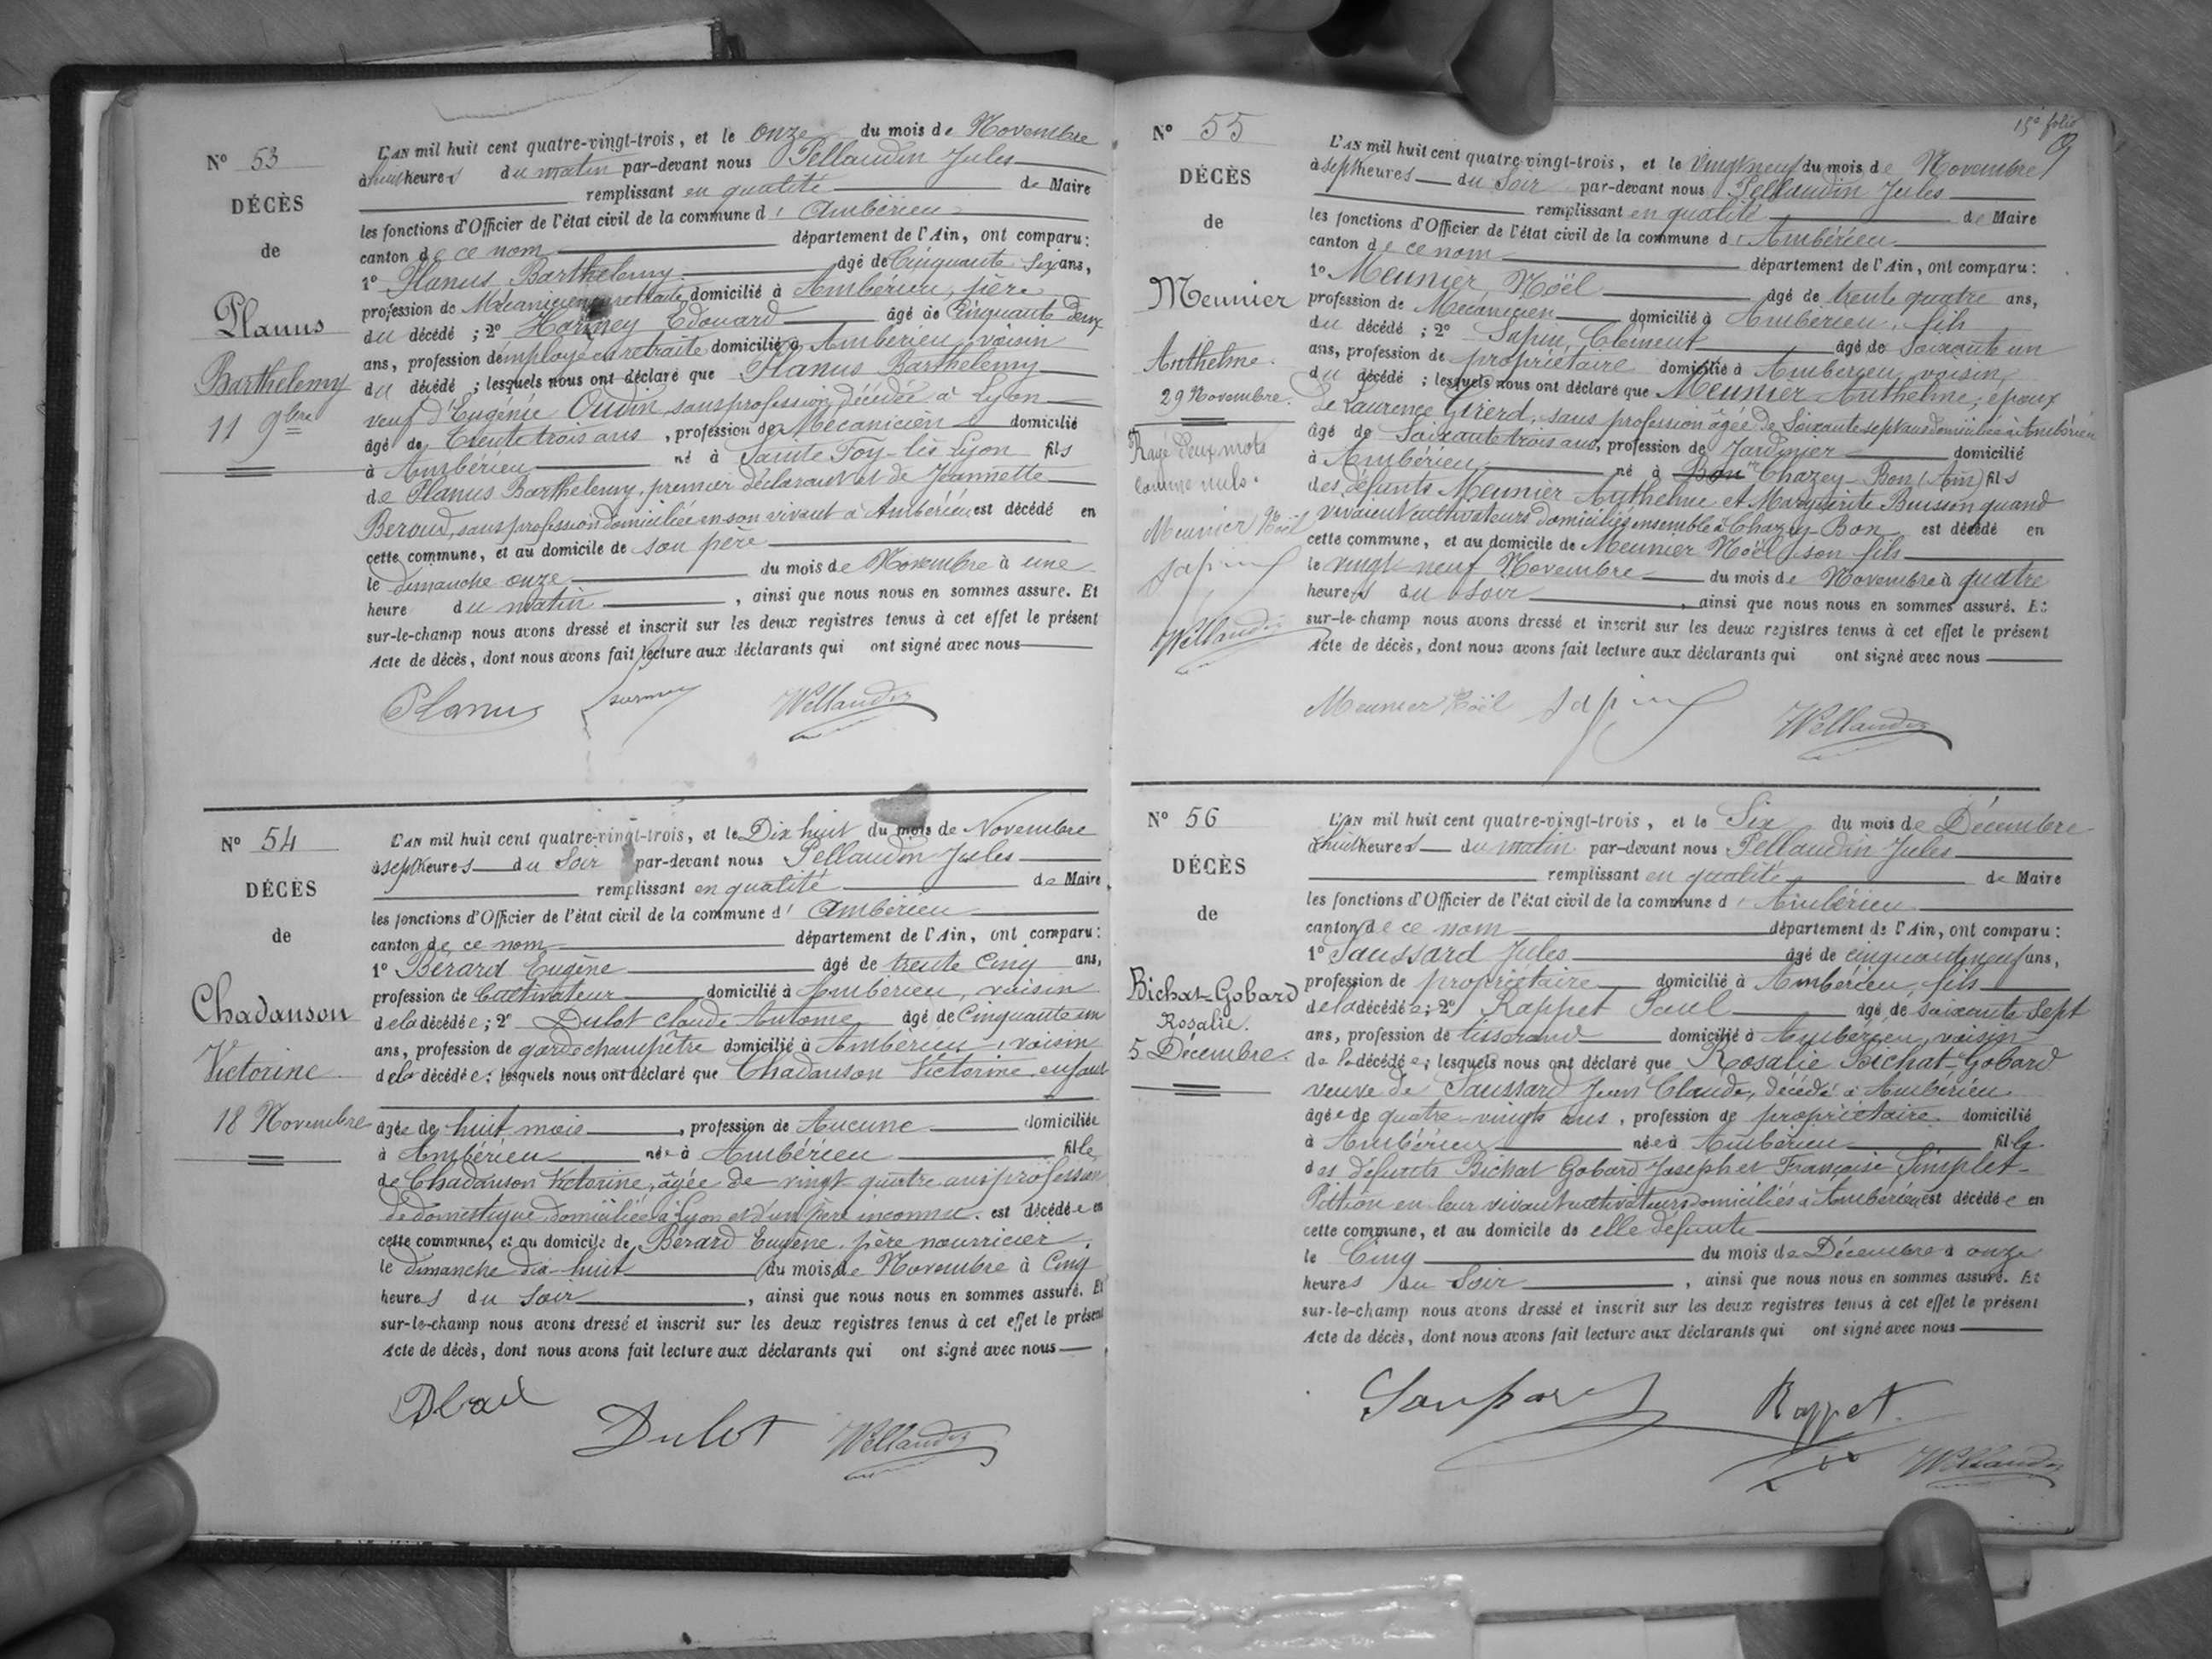 N° 53
DÉCÈS
de
Planus
Barthelemy
11 9bre
L'AN mil huit cent quatre-vingt-trois, et le onze du mois de Novembre
à heures du matin par-devant nous Pellaudin Jules
remplissant en qualité de Maire
les fonctions d'Officier de l'état civil de la commune d'Ambérieu
canton de ce nom département de l'Ain, ont comparu:
1° Planus Barthelemy âgé de Cinquante Six ans,
profession de Mécanicien en retraite domicilié à Ambérieu, père
du décédé ; 2° Edouard âgé de Cinquante deux
ans, profession d'employé en retraite domicilié à Ambérieu, voisin
du décédé ; lesquels nous ont déclaré que Planus Barthelemy
veuf d'Eugénie Oudin, sans profession, décédée à Lyon
âgé de trente trois ans, profession de Mécanicien domicilié
à Ambérieu né à Sainte Foy-lès Lyon fils
de Planus Barthelemy, premier déclarant et de Jeannette
Beroud, sans profession domiciliée en son vivant à Ambérieu est décédé en
cette commune, et au domicile de son père
le dimanche onze du mois de Novembre à une
heure du matin, ainsi que nous nous en sommes assuré. Et
sur-le-champ nous avons dressé et inscrit sur les deux registres tenus à cet effet le présent
Acte de décès, dont nous avons fait lecture aux déclarants qui ont signé avec nous
Planus Pellaudin
N° 54
DÉCÈS
de
Chadanson
Victorine
18 Novembre
L'AN mil huit cent quatre-vingt-trois, et le Dix huit du mois de Novembre
à sept heures du Soir par-devant nous Pellaudin Jules
remplissant en qualité de Maire
les fonctions d'Officier de l'état civil de la commune d'Ambérieu
canton de ce nom département de l'Ain, ont comparu:
1° Bérard Eugène âgé de trente Cinq ans,
profession de Cultivateur domicilié à Ambérieu, voisin
de la décédée ; 2° Dulot Claude Antoine âgé de Cinquante un
ans, profession de garde champêtre domicilié à Ambérieu, voisin
de la décédée ; lesquels nous ont déclaré que Chadanson Victorine, enfant
âgée de huit mois, profession de Aucune domiciliée
à Ambérieu née à Ambérieu fille
de Chadanson Victorine, âgée de vingt quatre ans profession
de domestique domiciliée à Lyon et d'un père inconnu. est décédée en
cette commune, et au domicile de Bérard Eugène, père nourricier
le dimanche dix huit du mois de Novembre à Cinq
heures du Soir, ainsi que nous nous en sommes assuré. Et
sur-le-champ nous avons dressé et inscrit sur les deux registres tenus à cet effet le présent
Acte de décès, dont nous avons fait lecture aux déclarants qui ont signé avec nous
Dulot Pellaudin
15e folio
N° 55
DÉCÈS
de
Meunier
Anthelme.
29 Novembre.
Rayé deux mots
comme nuls.
Meunier Noël
Sapin
Pellaudin
L'AN mil huit cent quatre-vingt-trois, et le vingt neuf du mois de Novembre
à sept heures du Soir par-devant nous Pellaudin Jules
remplissant en qualité de Maire
les fonctions d'Officier de l'état civil de la commune d'Ambérieu
canton de ce nom département de l'Ain, ont comparu:
1° Meunier Noël âgé de trente quatre ans,
profession de Mécanicien domicilié à Ambérieu, fils
du décédé ; 2° Sapin, Clément âgé de Soixante un
ans, profession de propriétaire domicilié à Ambérieu, voisin
du décédé ; lesquels nous ont déclaré que Meunier Anthelme, époux
de Laurence Girerd, sans profession âgée de Soixante sept ans domiciliée à Ambérieu
âgé de Soixante trois ans, profession de Jardinier domicilié
à Ambérieu né à Bon Chazey-Bon (Ain) fils
des défunts Meunier Anthelme et Marguerite Buisson quand
vivaient cultivateurs domiciliés ensemble à Chazey-Bon est décédé en
cette commune, et au domicile de Meunier Noël, son fils
le vingt neuf Novembre du mois de Novembre à quatre
heures du soir, ainsi que nous nous en sommes assuré. Et
sur-le-champ nous avons dressé et inscrit sur les deux registres tenus à cet effet le présent
Acte de décès, dont nous avons fait lecture aux déclarants qui ont signé avec nous
Meunier Noël Sapin Pellaudin
N° 56
DÉCÈS
de
Bichat-Gobard
Rosalie.
5 Décembre.
L'AN mil huit cent quatre-vingt-trois, et le Six du mois de Décembre
à huit heures du matin par-devant nous Pellaudin Jules
remplissant en qualité de Maire
les fonctions d'Officier de l'état civil de la commune d'Ambérieu
canton de ce nom département de l'Ain, ont comparu:
1° Saussard Jules âgé de cinquante neuf ans,
profession de propriétaire domicilié à Ambérieu, fils
de la décédée ; 2° Rappet Paul âgé de soixante Sept
ans, profession de tisserand domicilié à Ambérieu, voisin
de la décédée ; lesquels nous ont déclaré que Rosalie Bichat-Gobard
veuve de Saussard Jean Claude, décédé à Ambérieu
âgée de quatre-vingts ans, profession de propriétaire domicilié
à Ambérieu née à Ambérieu fille
des défunts Bichat Gobard Joseph et Françoise Simplet-
Pithion en leur vivant cultivateurs domiciliés à Ambérieu est décédée en
cette commune, et au domicile de elle défunte
le Cinq du mois de Décembre à onze
heures du Soir, ainsi que nous nous en sommes assuré. Et
sur-le-champ nous avons dressé et inscrit sur les deux registres tenus à cet effet le présent
Acte de décès, dont nous avons fait lecture aux déclarants qui ont signé avec nous
Saussard Rappet Pellaudin